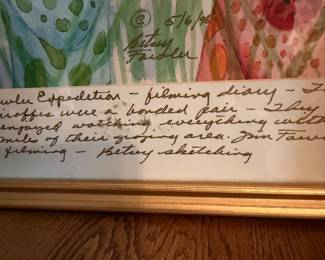 © 5/6/95
Betsy
Fowler
wler Expedition - filming diary - T
iraffes were a bonded pair - They
engaged watching everything with
miles of their grazing area. Jim Fow
filming - Betsy sketching